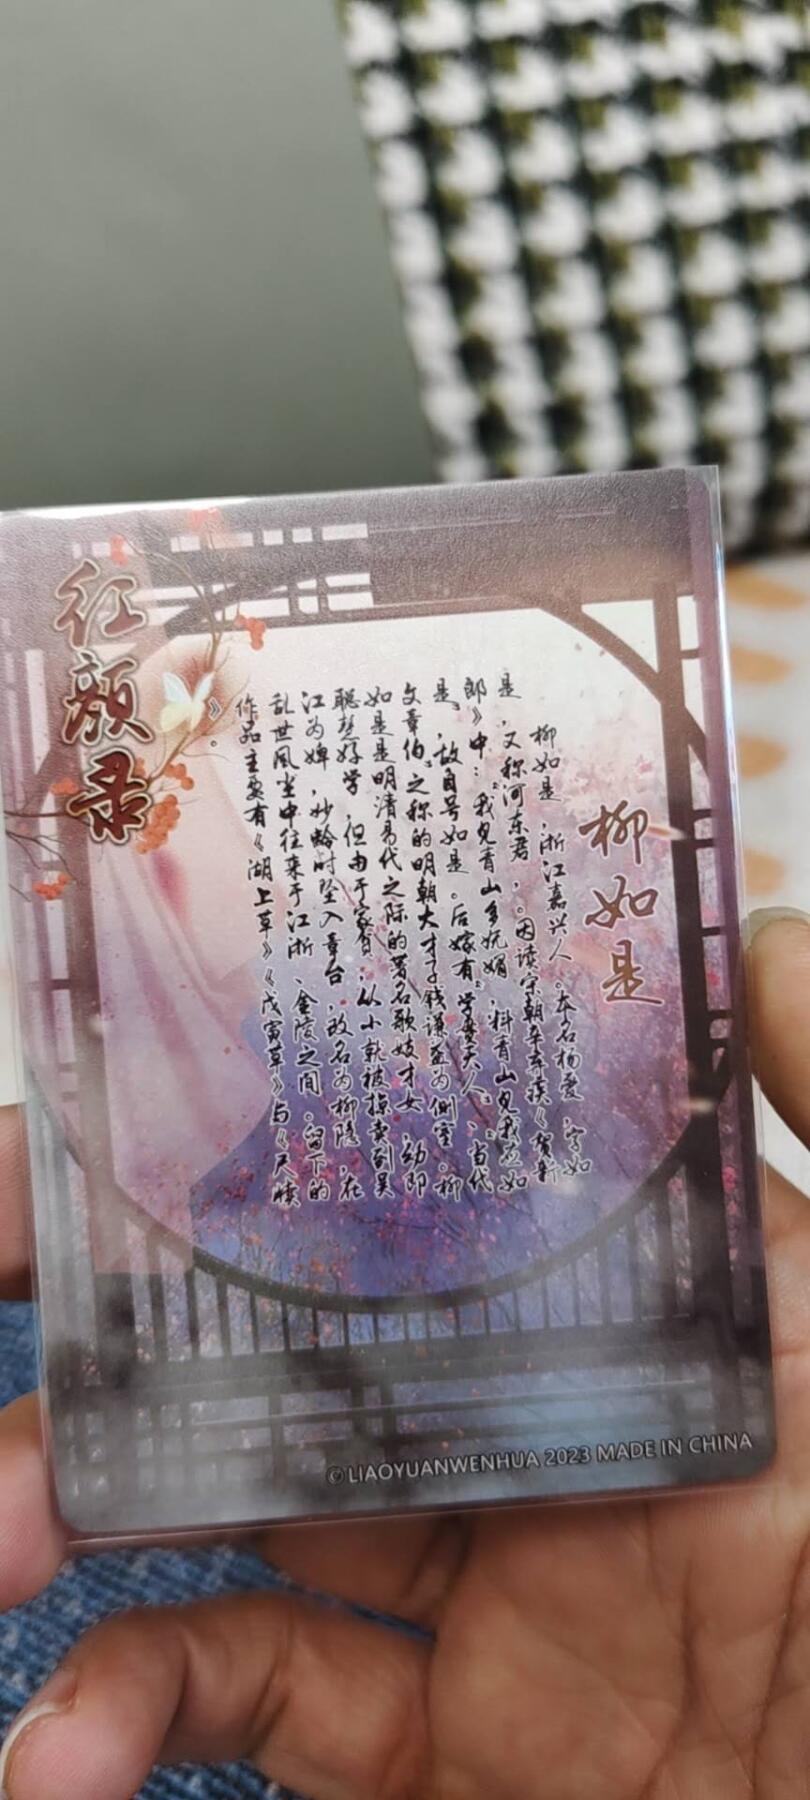 红颜录
柳如是
柳如是，浙江嘉兴人。本名杨爱，字如
是，又称河东君，。因读宋朝辛弃疾《贺新
郎》中："我见青山多妩媚，料青山见我应如
是"，故自号如是。后嫁有"学贯天人"、"当代
文章伯"之称的明朝大才子钱谦益为侧室。柳
如是是明清易代之际的著名歌妓才女，幼即
聪慧好学，但由于家贫，从小就被掠卖到吴
江为婢，妙龄时坠入章台，改名为柳隐，在
乱世风尘中往来于江浙、金陵之间。留下的
作品主要有《湖上草》《戊寅草》与《尺牍
》。
©LIAOYUANWENHUA 2023 MADE IN CHINA